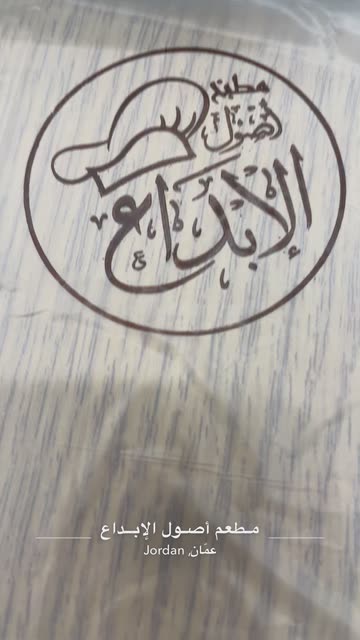 مطبخ
أصول
الإبداع
مطعم أصول الإبداع
عمّان, Jordan